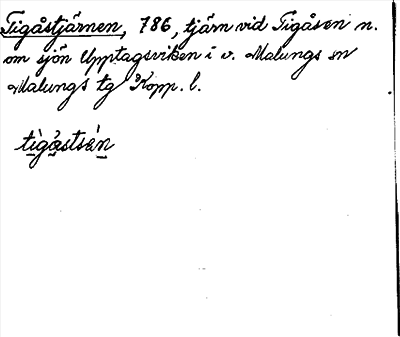 Tigåstjärnen, 786, tjärn vid Tigåsen n.
om sjön Upptagsviken i v. Malungs sn
Malungs tg Kopp. l.
tìgå̀stsə́n